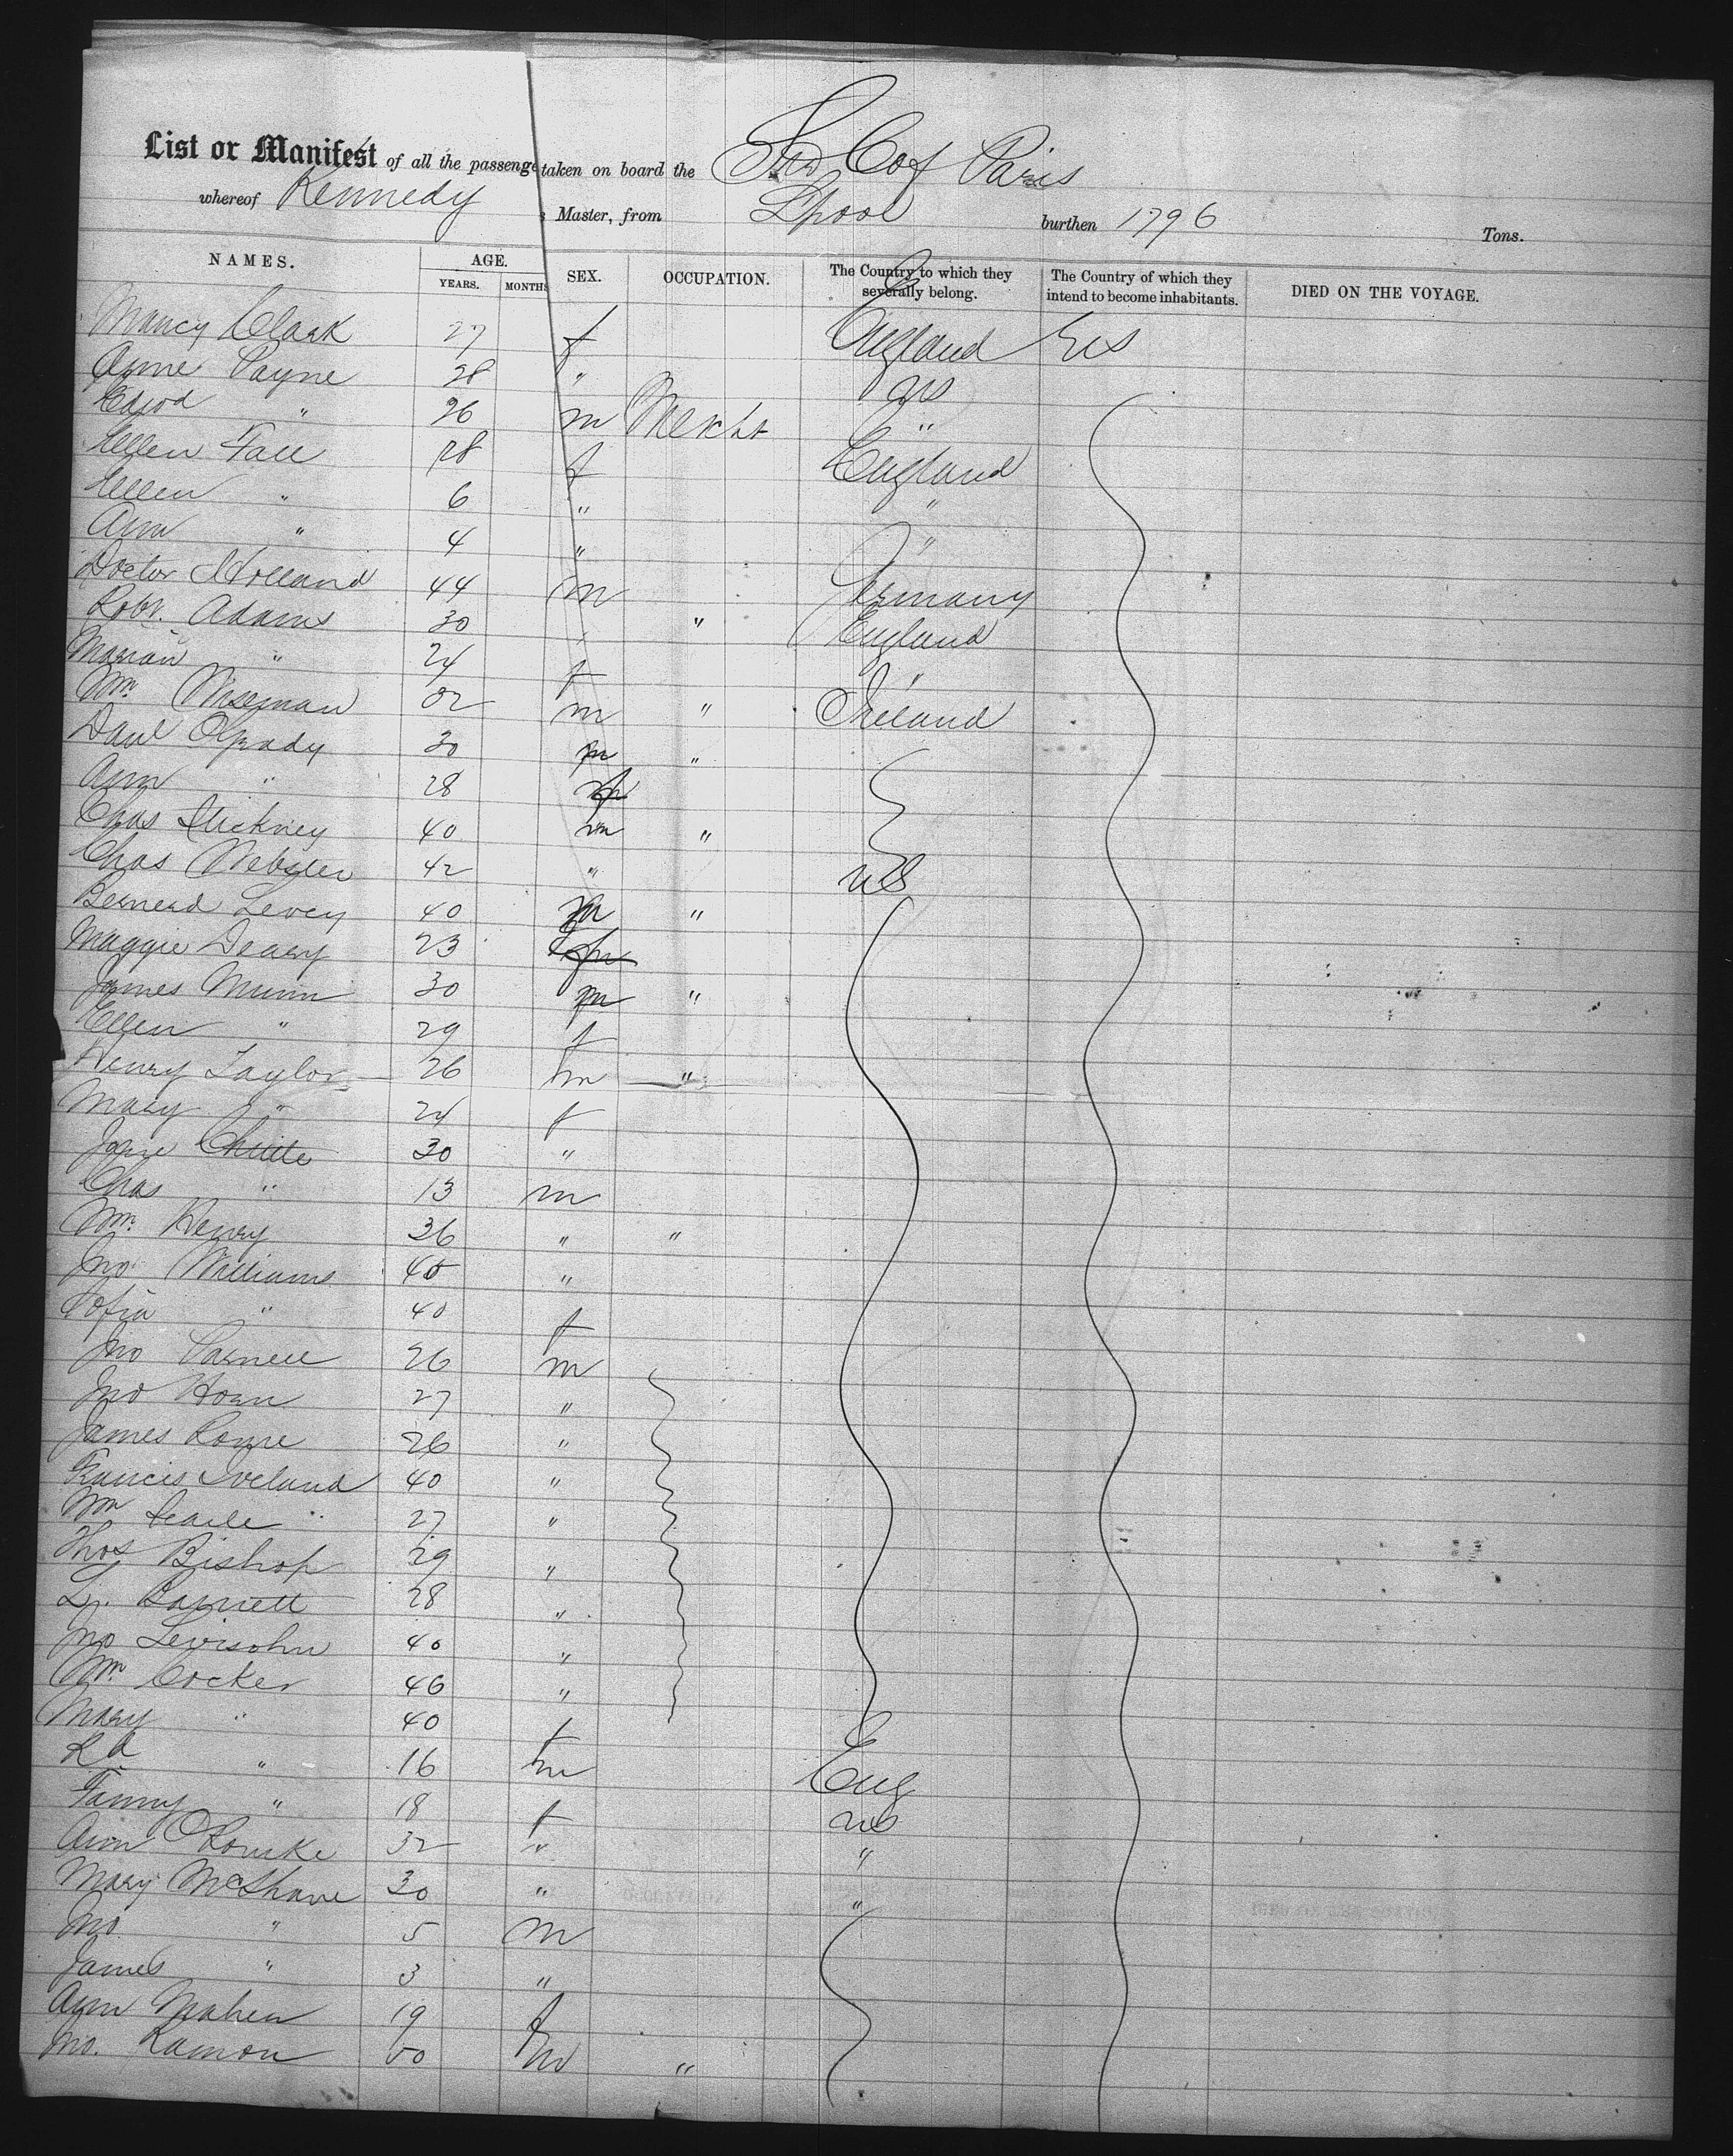 List or Manifest of all the passenge taken on board the Str C of Paris
whereof Kennedy s Master, from L'pool burthen 1796 Tons.
NAMES. AGE. SEX. OCCUPATION. The Country to which they severally belong. The Country of which they intend to become inhabitants. DIED ON THE VOYAGE.
YEARS. MONTHS
Nancy Clark 27 f England US
Anne Payne 28 " US
Edwd " 26 m Mercht "
Ellen Fall 28 f England
Ellen " 6 " "
Ann " 4 " "
Doctor Holland 44 m Germany
Robt. Adams 30 " England
Marian " 24 f "
Wm. Wiseman 32 m " Ireland
Danl OGrady 30 m "
Ann " 28 f
Chas Stickney 40 m "
Chas Webster 42 " US
Bernerd Levey 40 m "
Maggie Deary 23 f
James Munn 30 m "
Ellen " 29 f
Henry Taylor 26 m "
Mary " 24 f
Jane Chute 30 "
Chas " 13 m
Wm. Henry 36 " "
Jno Williams 40 "
Sofia " 40 f
Jno Parnell 26 m
Jno Horn 27 "
James Rowe 26 "
Francis Iveland 40 "
Wm Searle 27 "
Thos Bishop 29 "
L. Barnett 28 "
Jno Levisohn 40 "
Wm Cocker 46 "
Mary " 40 f
Rd " 16 m Eng
Fanny " 18 f US
Ann ORourke 32 " "
Mary McShane 30 " "
Jno " 5 m
James " 3 "
Ann Mahen 19 f
Jno. Ramon 60 m "